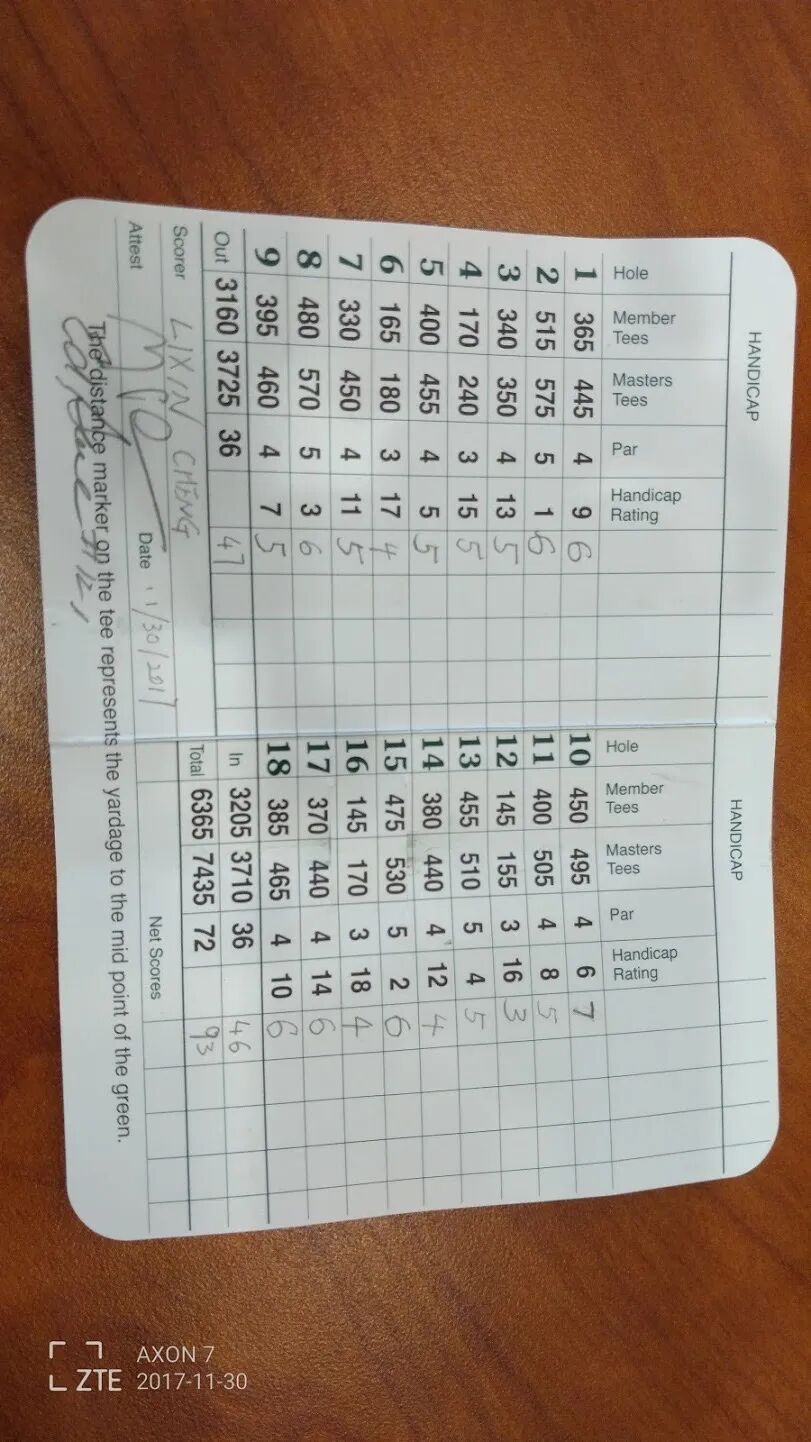 HANDICAP
Hole Member Tees Masters Tees Par Handicap Rating
1 365 445 4 9 6
2 515 575 5 1 6
3 340 350 4 13 5
4 170 240 3 15 5
5 400 455 4 5 5
6 165 180 3 17 4
7 330 450 4 11 5
8 480 570 5 3 6
9 395 460 4 7 5
Out 3160 3725 36 47
Scorer LIXIN CHENG
Attest Date 11/30/2017
HANDICAP
Hole Member Tees Masters Tees Par Handicap Rating
10 450 495 4 6 7
11 400 505 4 8 5
12 145 155 3 16 3
13 455 510 5 4 5
14 380 440 4 12 4
15 475 530 5 2 6
16 145 170 3 18 4
17 370 440 4 14 6
18 385 465 4 10 6
In 3205 3710 36 46
Total 6365 7435 72 93
Net Scores
The distance marker on the tee represents the yardage to the mid point of the green.
AXON 7
ZTE 2017-11-30